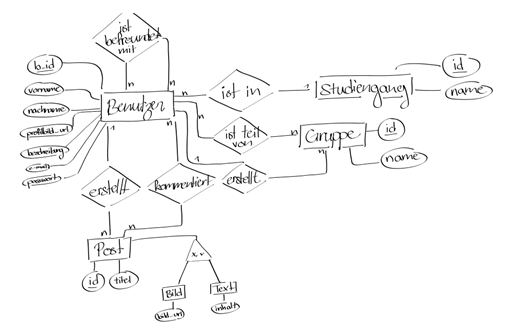 ist
befreundet
mit
n
n
b_id
vorname
nachname
profilbild_url
beschreibung
e-mail
passwort
Benutzer
n
ist in
1
Studiengang
id
name
n
ist teil
von
n
Gruppe
id
name
1
erstellt
n
1
erstellt
n
n
kommentiert
n
Post
id
titel
x, v
Bild
bild_url
Text
inhalt